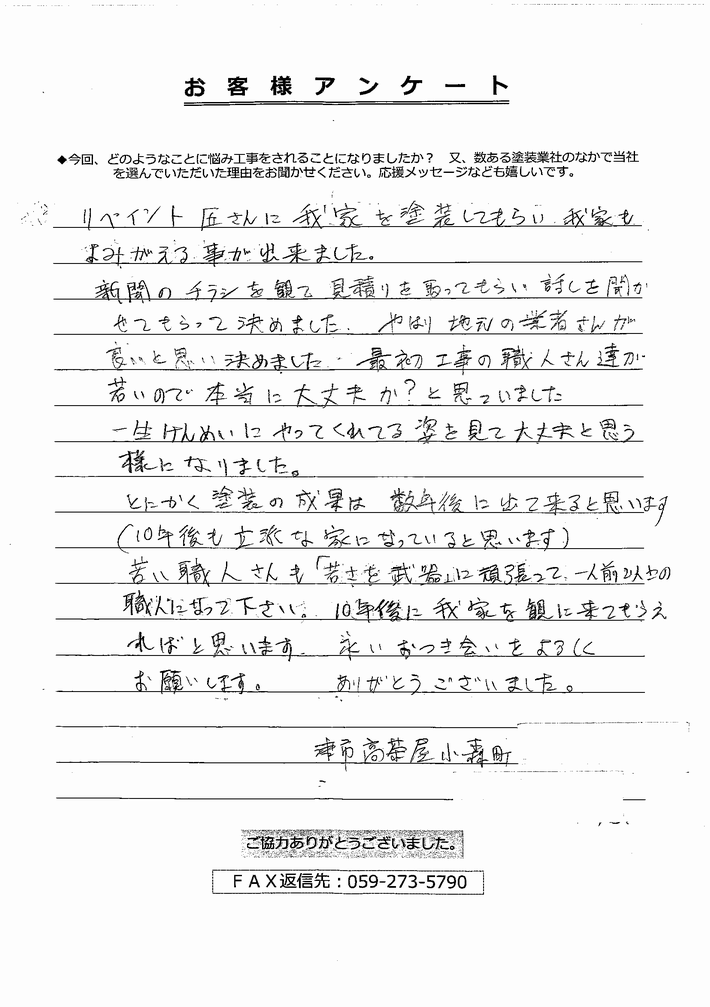 お客様アンケート
◆今回、どのようなことに悩み工事をされることになりましたか？　又、数ある塗装業社のなかで当社
を選んでいただいた理由をお聞かせください。応援メッセージなども嬉しいです。
リペイント匠さんに我家を塗装してもらい我家も
よみがえる事が出来ました。
新聞のチラシを観て見積りを取ってもらい話しを聞か
せてもらって決めました。やはり地元の業者さんが
良いと思い決めました。最初工事の職人さん達が
若いので本当に大丈夫か？と思っていました
一生けんめいにやってくれてる姿を見て大丈夫と思う
様になりました。
とにかく塗装の成果は数年後に出て来ると思います
（10年後も立派な家になっていると思います）
若い職人さんも「若さを武器」に頑張って、一人前以上の
職人になって下さい。10年後に我家を観に来てもらえ
ればと思います。永いおつき合いをよろしく
お願いします。　ありがとうございました。
津市高茶屋小森町
ご協力ありがとうございました。
ＦＡＸ返信先：059-273-5790